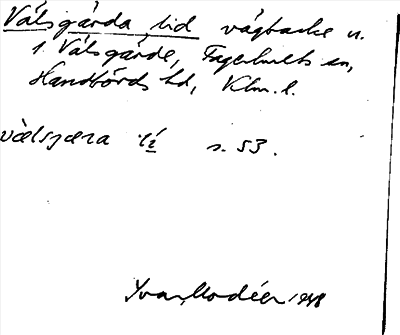 Välsgärda lid vägbacke n.
1. Välsgärde, Fagerhults sn,
Handbörds hd, Klm. l.
vælsjæra li s. 53.
Ivar Modéer 1948